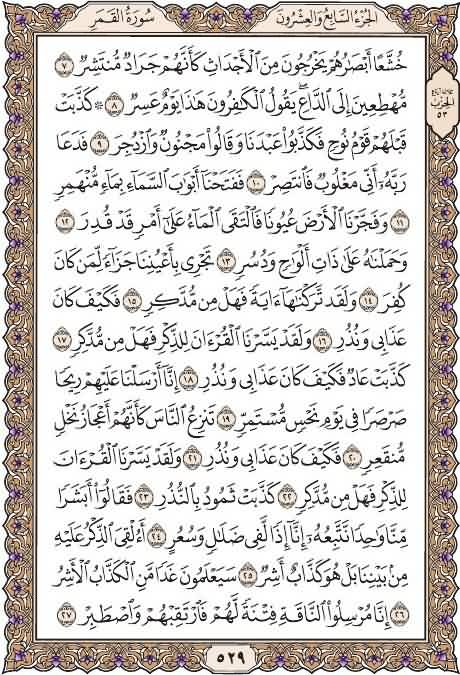 الجزء السابع والعشرون
سورة القمر
خُشَّعًا أَبْصَٰرُهُمْ يَخْرُجُونَ مِنَ ٱلْأَجْدَاثِ كَأَنَّهُمْ جَرَادٌ مُّنتَشِرٌ ٧
مُّهْطِعِينَ إِلَى ٱلدَّاعِ ۖ يَقُولُ ٱلْكَٰفِرُونَ هَٰذَا يَوْمٌ عَسِرٌ ٨ ۞ كَذَّبَتْ
قَبْلَهُمْ قَوْمُ نُوحٍ فَكَذَّبُوا۟ عَبْدَنَا وَقَالُوا۟ مَجْنُونٌ وَٱزْدُجِرَ ٩ فَدَعَا
رَبَّهُۥٓ أَنِّى مَغْلُوبٌ فَٱنتَصِرْ ١٠ فَفَتَحْنَآ أَبْوَٰبَ ٱلسَّمَآءِ بِمَآءٍ مُّنْهَمِرٍ
١١ وَفَجَّرْنَا ٱلْأَرْضَ عُيُونًا فَٱلْتَقَى ٱلْمَآءُ عَلَىٰٓ أَمْرٍ قَدْ قُدِرَ ١٢
وَحَمَلْنَٰهُ عَلَىٰ ذَاتِ أَلْوَٰحٍ وَدُسُرٍ ١٣ تَجْرِى بِأَعْيُنِنَا جَزَآءً لِّمَن كَانَ
كُفِرَ ١٤ وَلَقَد تَّرَكْنَٰهَآ ءَايَةً فَهَلْ مِن مُّدَّكِرٍ ١٥ فَكَيْفَ كَانَ
عَذَابِى وَنُذُرِ ١٦ وَلَقَدْ يَسَّرْنَا ٱلْقُرْءَانَ لِلذِّكْرِ فَهَلْ مِن مُّدَّكِرٍ ١٧
كَذَّبَتْ عَادٌ فَكَيْفَ كَانَ عَذَابِى وَنُذُرِ ١٨ إِنَّآ أَرْسَلْنَا عَلَيْهِمْ رِيحًا
صَرْصَرًا فِى يَوْمِ نَحْسٍ مُّسْتَمِرٍّ ١٩ تَنزِعُ ٱلنَّاسَ كَأَنَّهُمْ أَعْجَازُ نَخْلٍ
مُّنقَعِرٍ ٢٠ فَكَيْفَ كَانَ عَذَابِى وَنُذُرِ ٢١ وَلَقَدْ يَسَّرْنَا ٱلْقُرْءَانَ
لِلذِّكْرِ فَهَلْ مِن مُّدَّكِرٍ ٢٢ كَذَّبَتْ ثَمُودُ بِٱلنُّذُرِ ٢٣ فَقَالُوٓا۟ أَبَشَرًا
مِّنَّا وَٰحِدًا نَّتَّبِعُهُۥٓ إِنَّآ إِذًا لَّفِى ضَلَٰلٍ وَسُعُرٍ ٢٤ أَءُلْقِىَ ٱلذِّكْرُ عَلَيْهِ
مِنۢ بَيْنِنَا بَلْ هُوَ كَذَّابٌ أَشِرٌ ٢٥ سَيَعْلَمُونَ غَدًا مَّنِ ٱلْكَذَّابُ ٱلْأَشِرُ
٢٦ إِنَّا مُرْسِلُوا۟ ٱلنَّاقَةِ فِتْنَةً لَّهُمْ فَٱرْتَقِبْهُمْ وَٱصْطَبِرْ ٢٧
الحزب
٥٣
٥٢٩